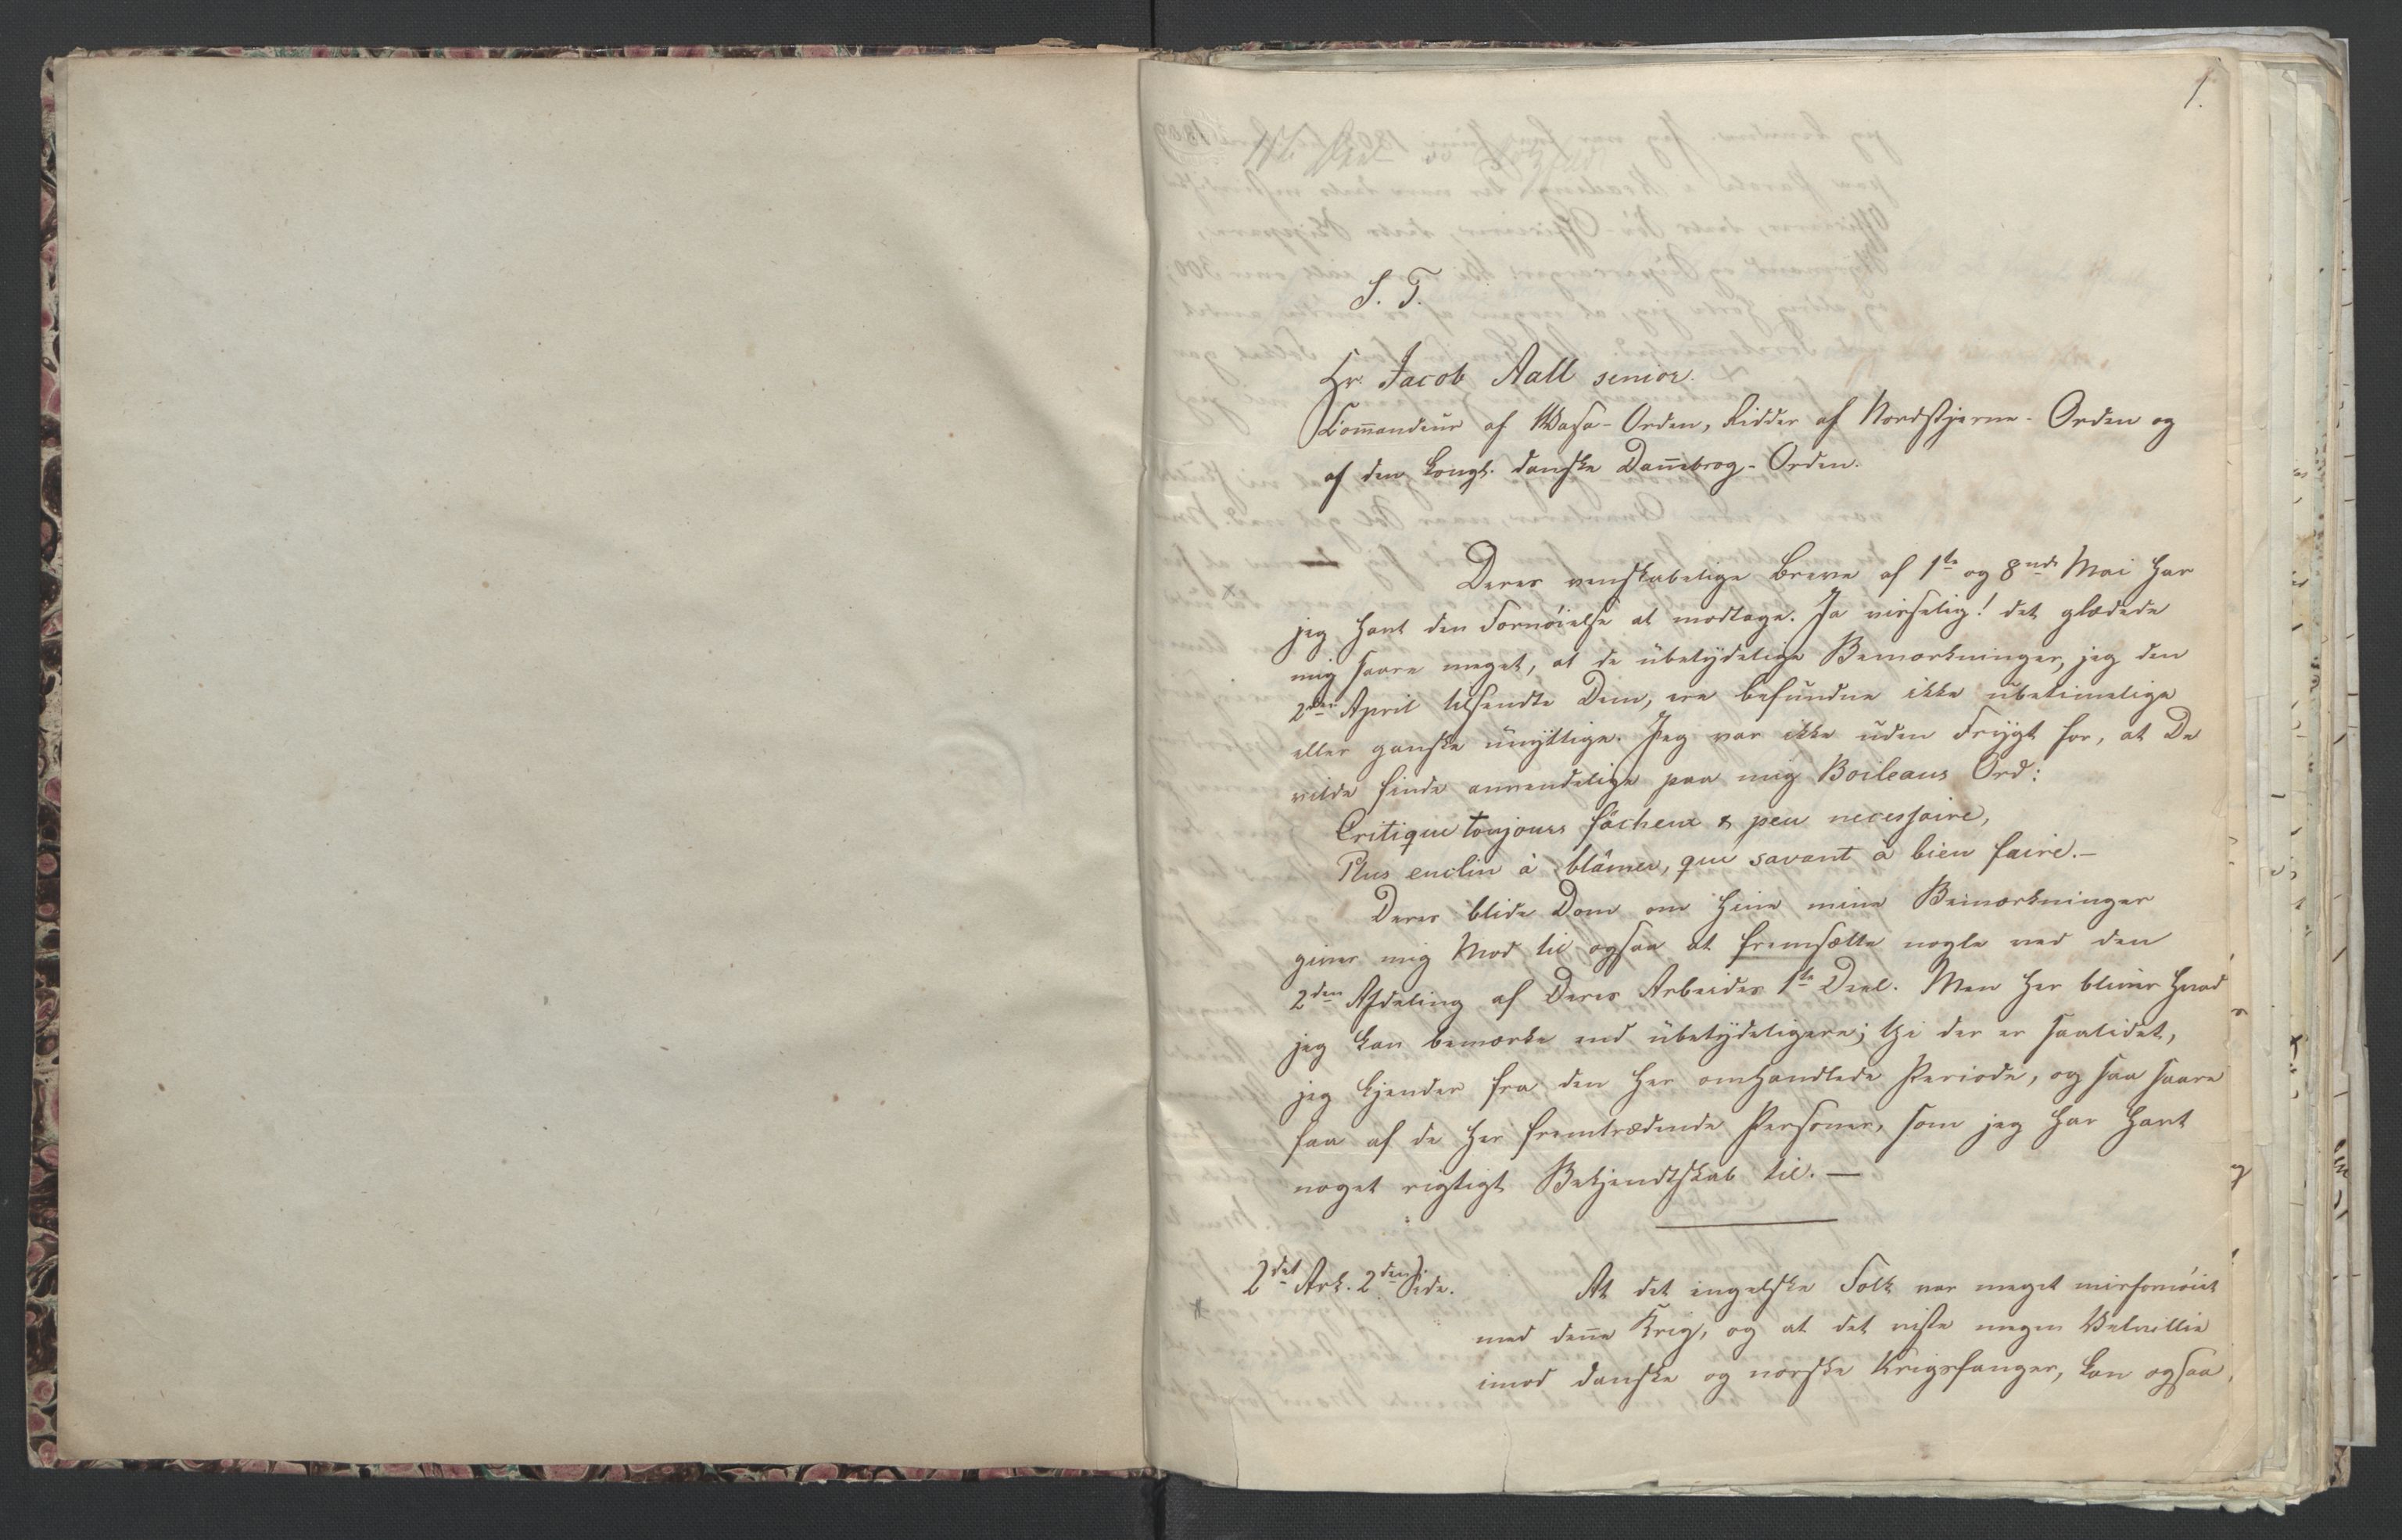 1.
S. T.
Hr. Jacob Aall senior.
Commandeur af Wasa-Orden, Ridder af Nordstjerne-Orden og
af den kongl. danske Dannebrog-Orden.
Deres venskabelige Breve af 1ste og 8nde Mai har
jeg havt den Fornöielse at modtage. Ja visselig! det glædede
mig saare meget, at de ubetydelige Bemærkninger, jeg den
2den April tilsendte Dem, ere befundne ikke ubetimelige
eller ganske unyttige. Jeg var ikke uden Frygt for, at De
vilde finde anvendelige paa mig Boileaus Ord:
Critique toujours fâcheux & peu necessaire,
Plus enclin à blâmer, que savant à bien faire.—
Deres blide Dom om hine mine Bemærkninger
giver mig Mod til ogsaa at fremsætte nogle ved den
2den Afdeling af Deres Arbeides 1ste Deel. Men her bliver hvad
jeg kan bemærke end ubetydeligere; thi der er saalidet,
jeg kjender fra den her omhandlede Periode, og saa saare
faa af de her fremtrædende Personer, som jeg har havt
noget rigtigt Bekjendtskab til.—
2det Ark. 2den Side. At det engelske Folk var meget misfornöiet
med denne Krig, og at det viste megen Velvillie
imod danske og norske Krigsfanger, kan ogsaa